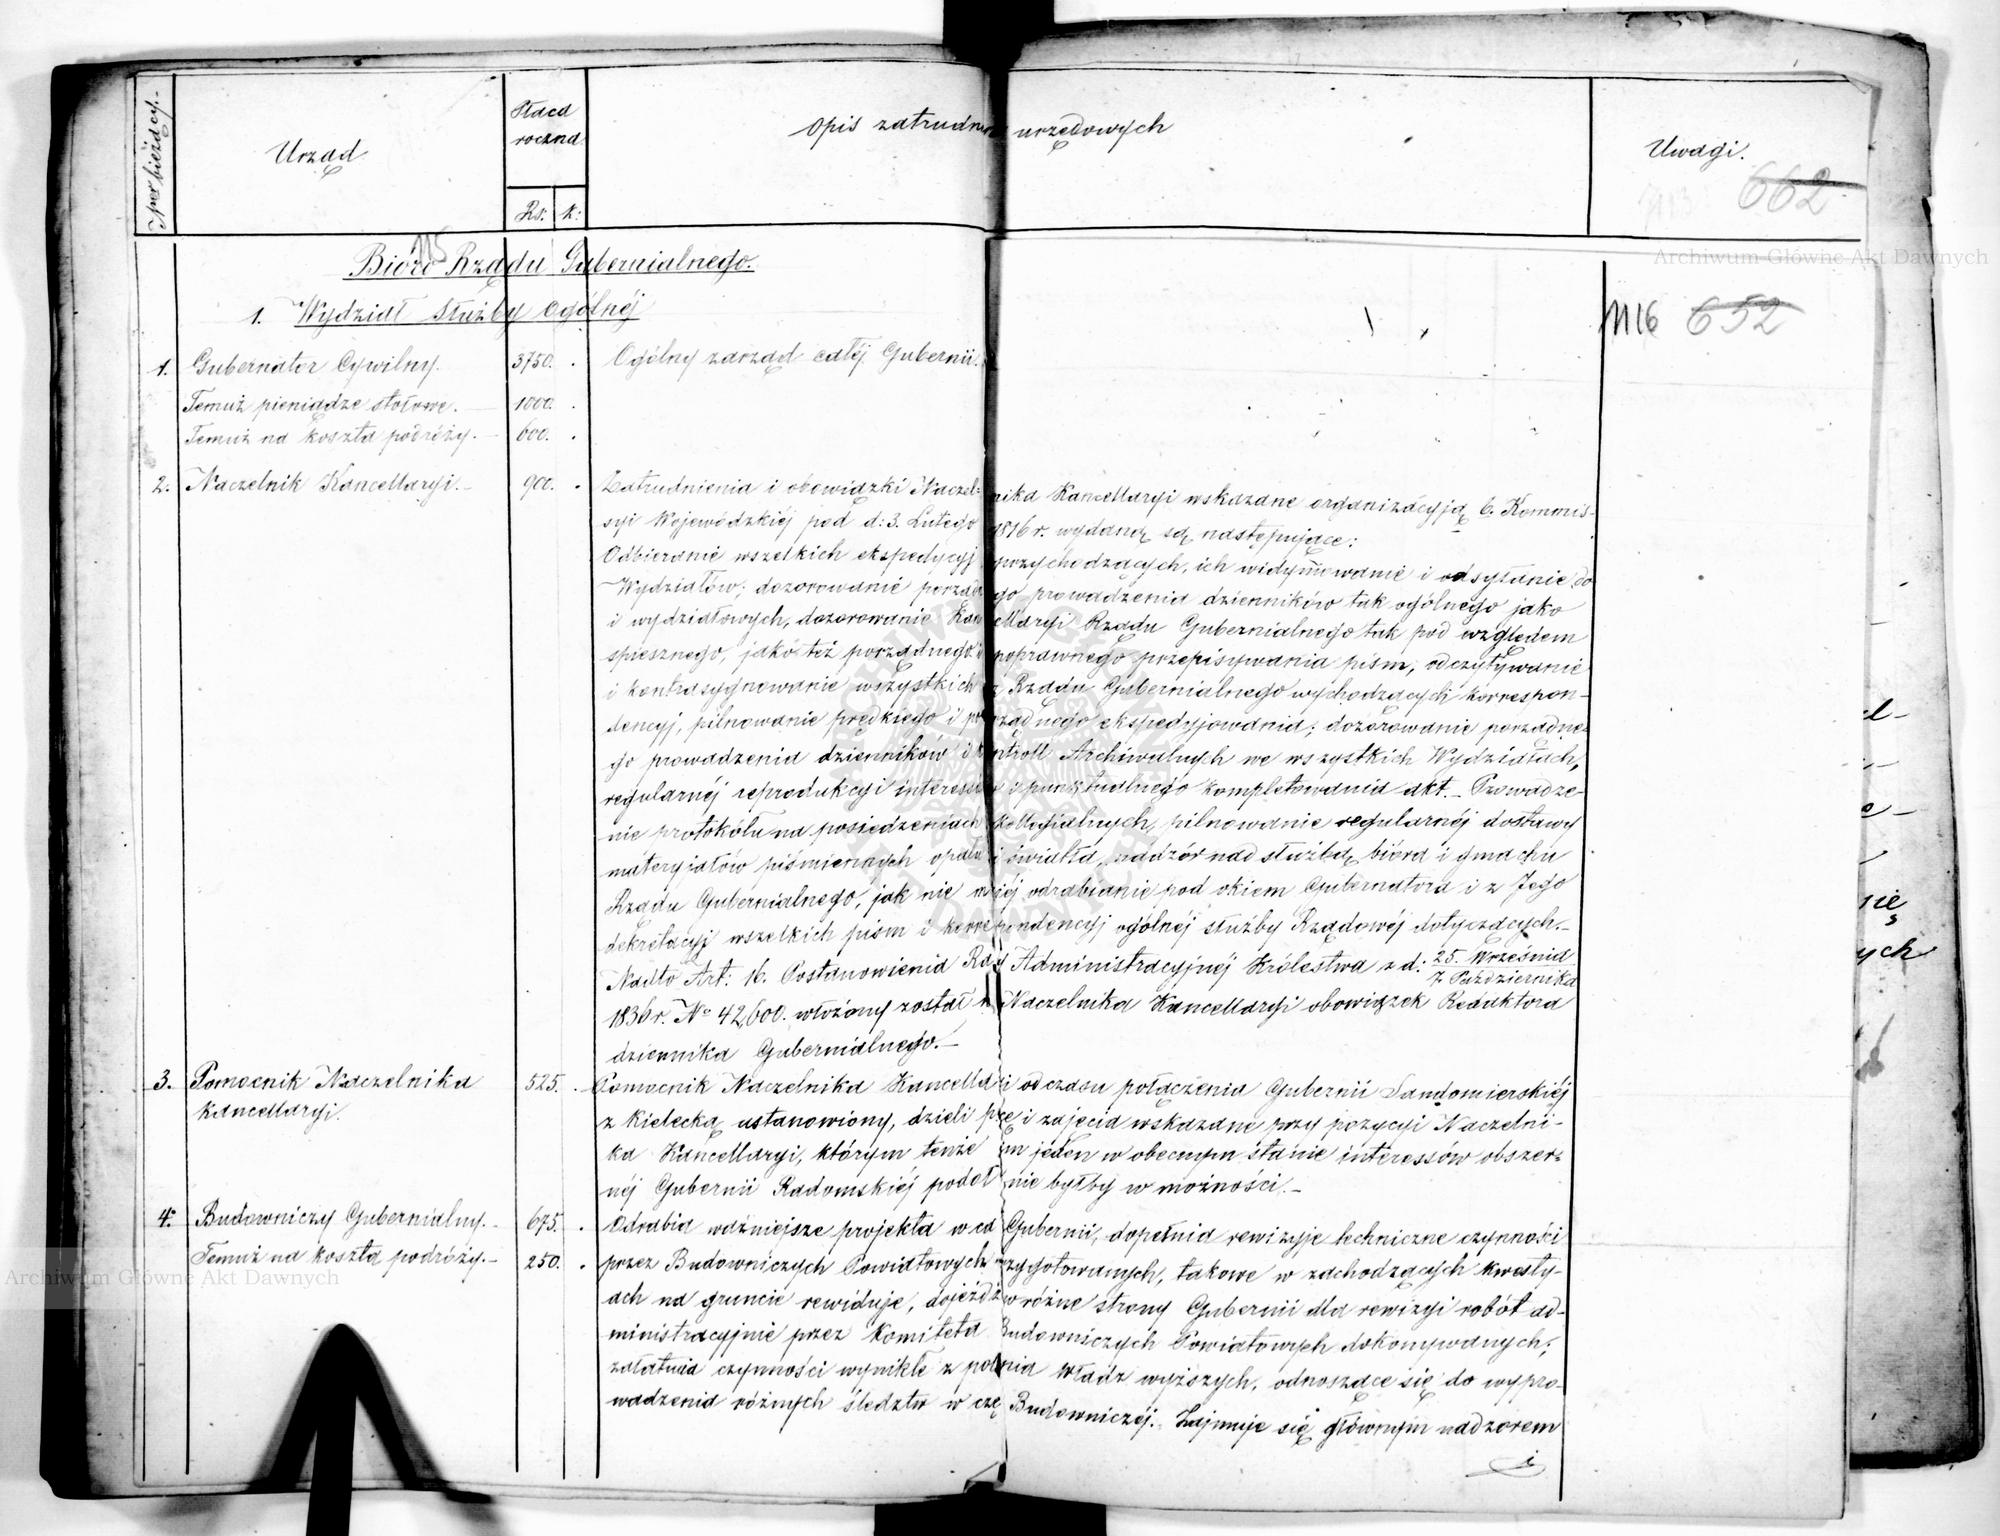 Nor bieżący.
Urząd
Płaca roczna
Rs: k:
Opis zatrudnień urzędowych
Uwagi.
662
115
Bióro Rządu Gubernialnego.
1. Wydział Służby Ogólnéj
1116 652
1. Gubernator Cywilny. 3750. Ogólny zarząd całéj Gubernii.
Temuż pieniądze stołowe. 1000.
Temuż na koszta podróży. 600.
2. Naczelnik Kancellaryi. 900. Zatrudnienia i obowiązki Naczelnika Kancellaryi wskazane organizacyją b. Kommis-
syi Wojewódzkiéj pod d: 3. Lutego 1816 r. wydaną są następujące:
Odbieranie wszelkich ekspedycyj przychodzących, ich widymowanie i odsyłanie do
Wydziałów; dozorowanie porządnego prowadzenia dzienników tak ogólnego jako
i wydziałowych, dozorowanie Kancellaryi Rządu Gubernialnego tak pod względem
spiesznego, jako też porządnego i poprawnego przepisywania pism, odczytywanie
i kontrasygnowanie wszystkich z Rządu Gubernialnego wychodzących korrespon-
dencyj, pilnowanie prędkiego i porządnego ekspedyjowania; dozorowanie porządne-
go prowadzenia dzienników i kontroll Archiwalnych we wszystkich Wydziałach,
regularnéj reprodukcyi interessów i punktualnego kompletowania akt. Prowadze-
nie protokółu na posiedzeniach kollegialnych, pilnowanie regularnéj dostawy
materyjałów piśmiennych opału i światła, nadzór nad służbą bióra i gmachu
Rządu Gubernialnego, jak nie mniéj odrabianie pod okiem Gubernatora i z Jego
dekretacyj wszelkich pism i korrespondencyj ogólnéj służby Rządowéj dotyczących.
Nadto Art: 16. Postanowienia Rady Administracyjnéj Królestwa z d: 25. Września
7. Października
1836 r. No 42,600. włożony został na Naczelnika Kancellaryi obowiązek Redaktora
dziennika Gubernialnego.
3. Pomocnik Naczelnika 525. Pomocnik Naczelnika Kancellaryi od czasu połączenia Gubernii Sandomierskiéj
Kancellaryi. z Kielecką ustanowiony, dzieli pracę i zajęcia wskazane przy pozycyi Naczelni-
ka Kancellaryi, którym tenże sam jeden w obecnym stanie interessów obszer-
néj Gubernii Radomskiéj podołać nie byłby w możności.
4. Budowniczy Gubernialny. 675. Odrabia ważniejsze projekta w całéj Gubernii, dopełnia rewizyje techniczne czynności
Temuż na koszta podróży. 250. przez Budowniczych Powiatowych przygotowanych, takowe w zachodzących kwesty-
ach na gruncie rewiduje, dojeżdża w różne strony Gubernii dla rewizyi robót ad-
ministracyjnie przez Komiteta Budowniczych Powiatowych dokonywanych;
załatwia czynności wynikłe z polecenia Władz wyższych, odnoszące się do wypro-
wadzenia różnych śledztw w części Budowniczéj. Zajmuje się głównym nadzorem
i
Archiwum Główne Akt Dawnych
Archiwum Główne Akt Dawnych